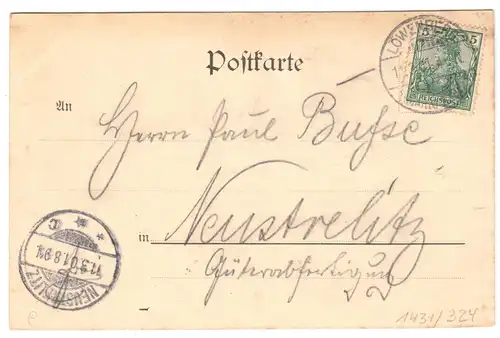 LÖWENBERG
5 5
REICHSPOST
Postkarte
An
Herrn Paul Busse
in Neustrelitz
Güterabfertigung
NEUSTRELITZ
11.9.01. 8-9V.
c
1431/324